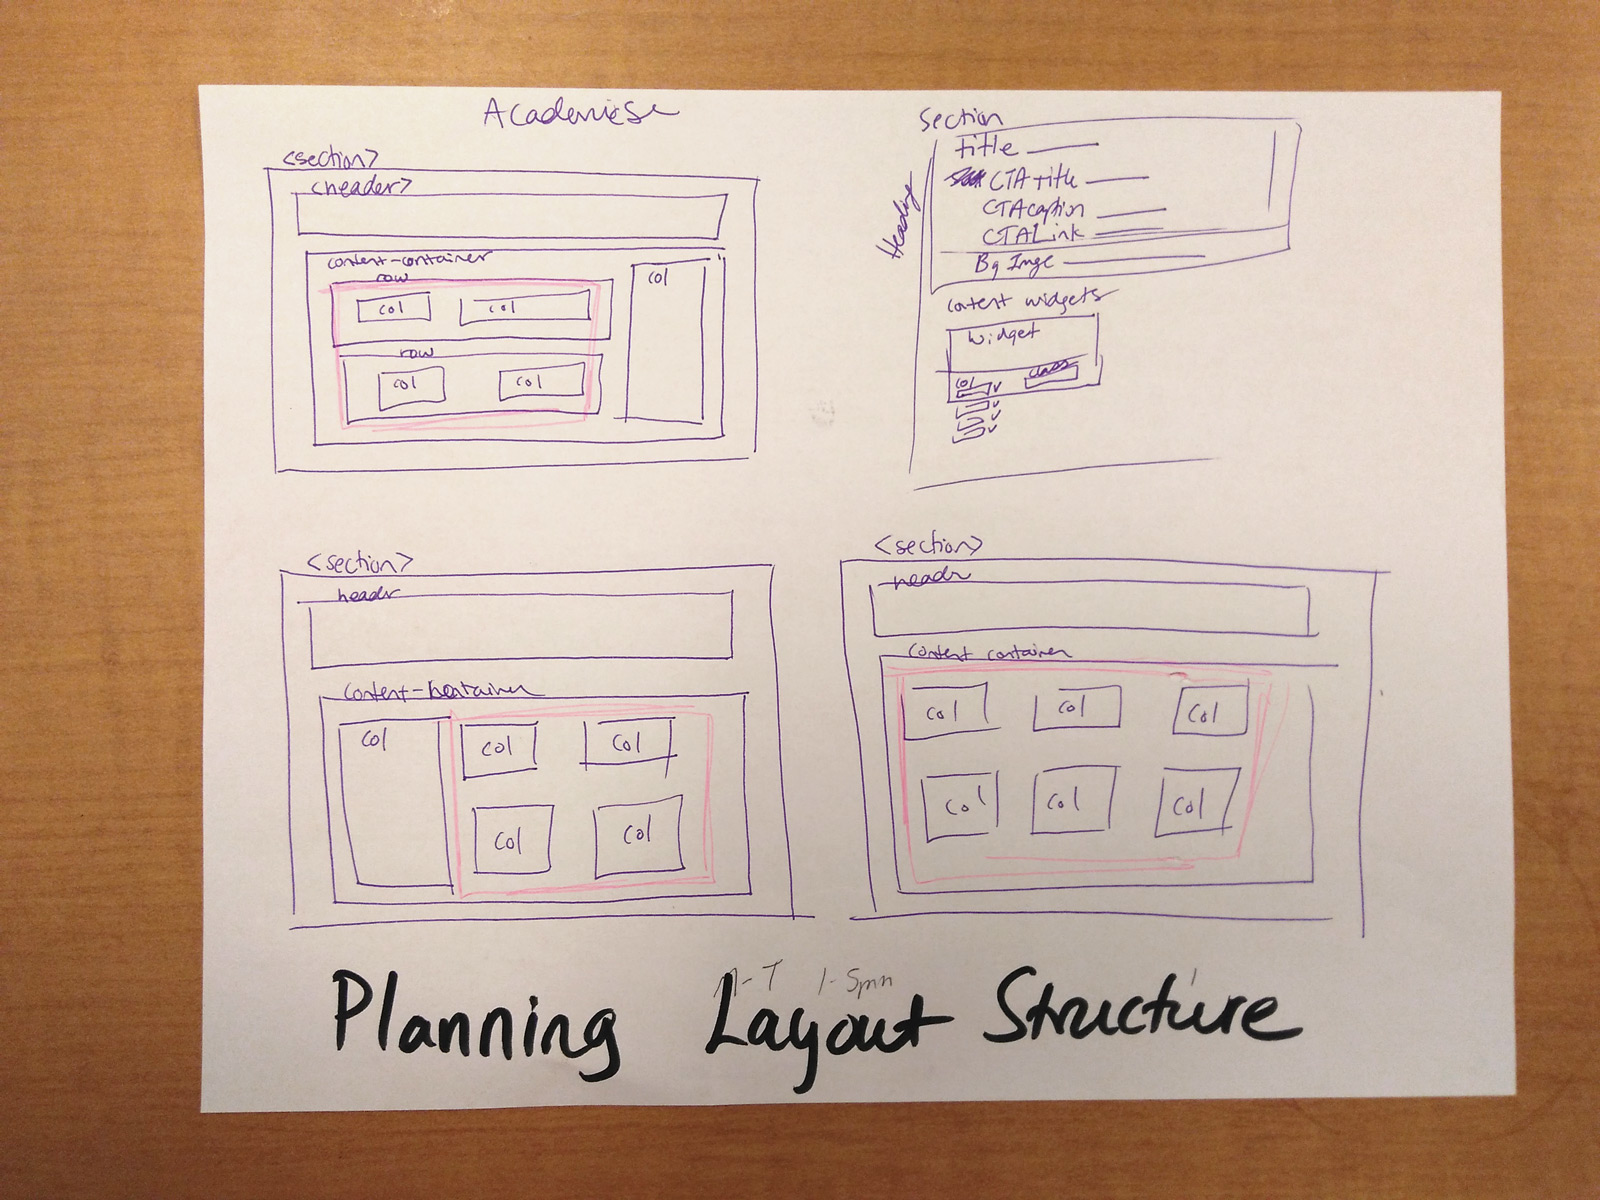 Academics
<section>
<header>
content-container
row
col
col
row
col
col
col
Section
Heading
Title
CTA Title
CTA caption
CTA Link
Bg Imge
Content widgets
Widget
col
class
<section>
headr
content-
col
col
col
col
col
<section>
headr
content container
col
col
col
col
col
col
1-5pm
Planning Layout Structure